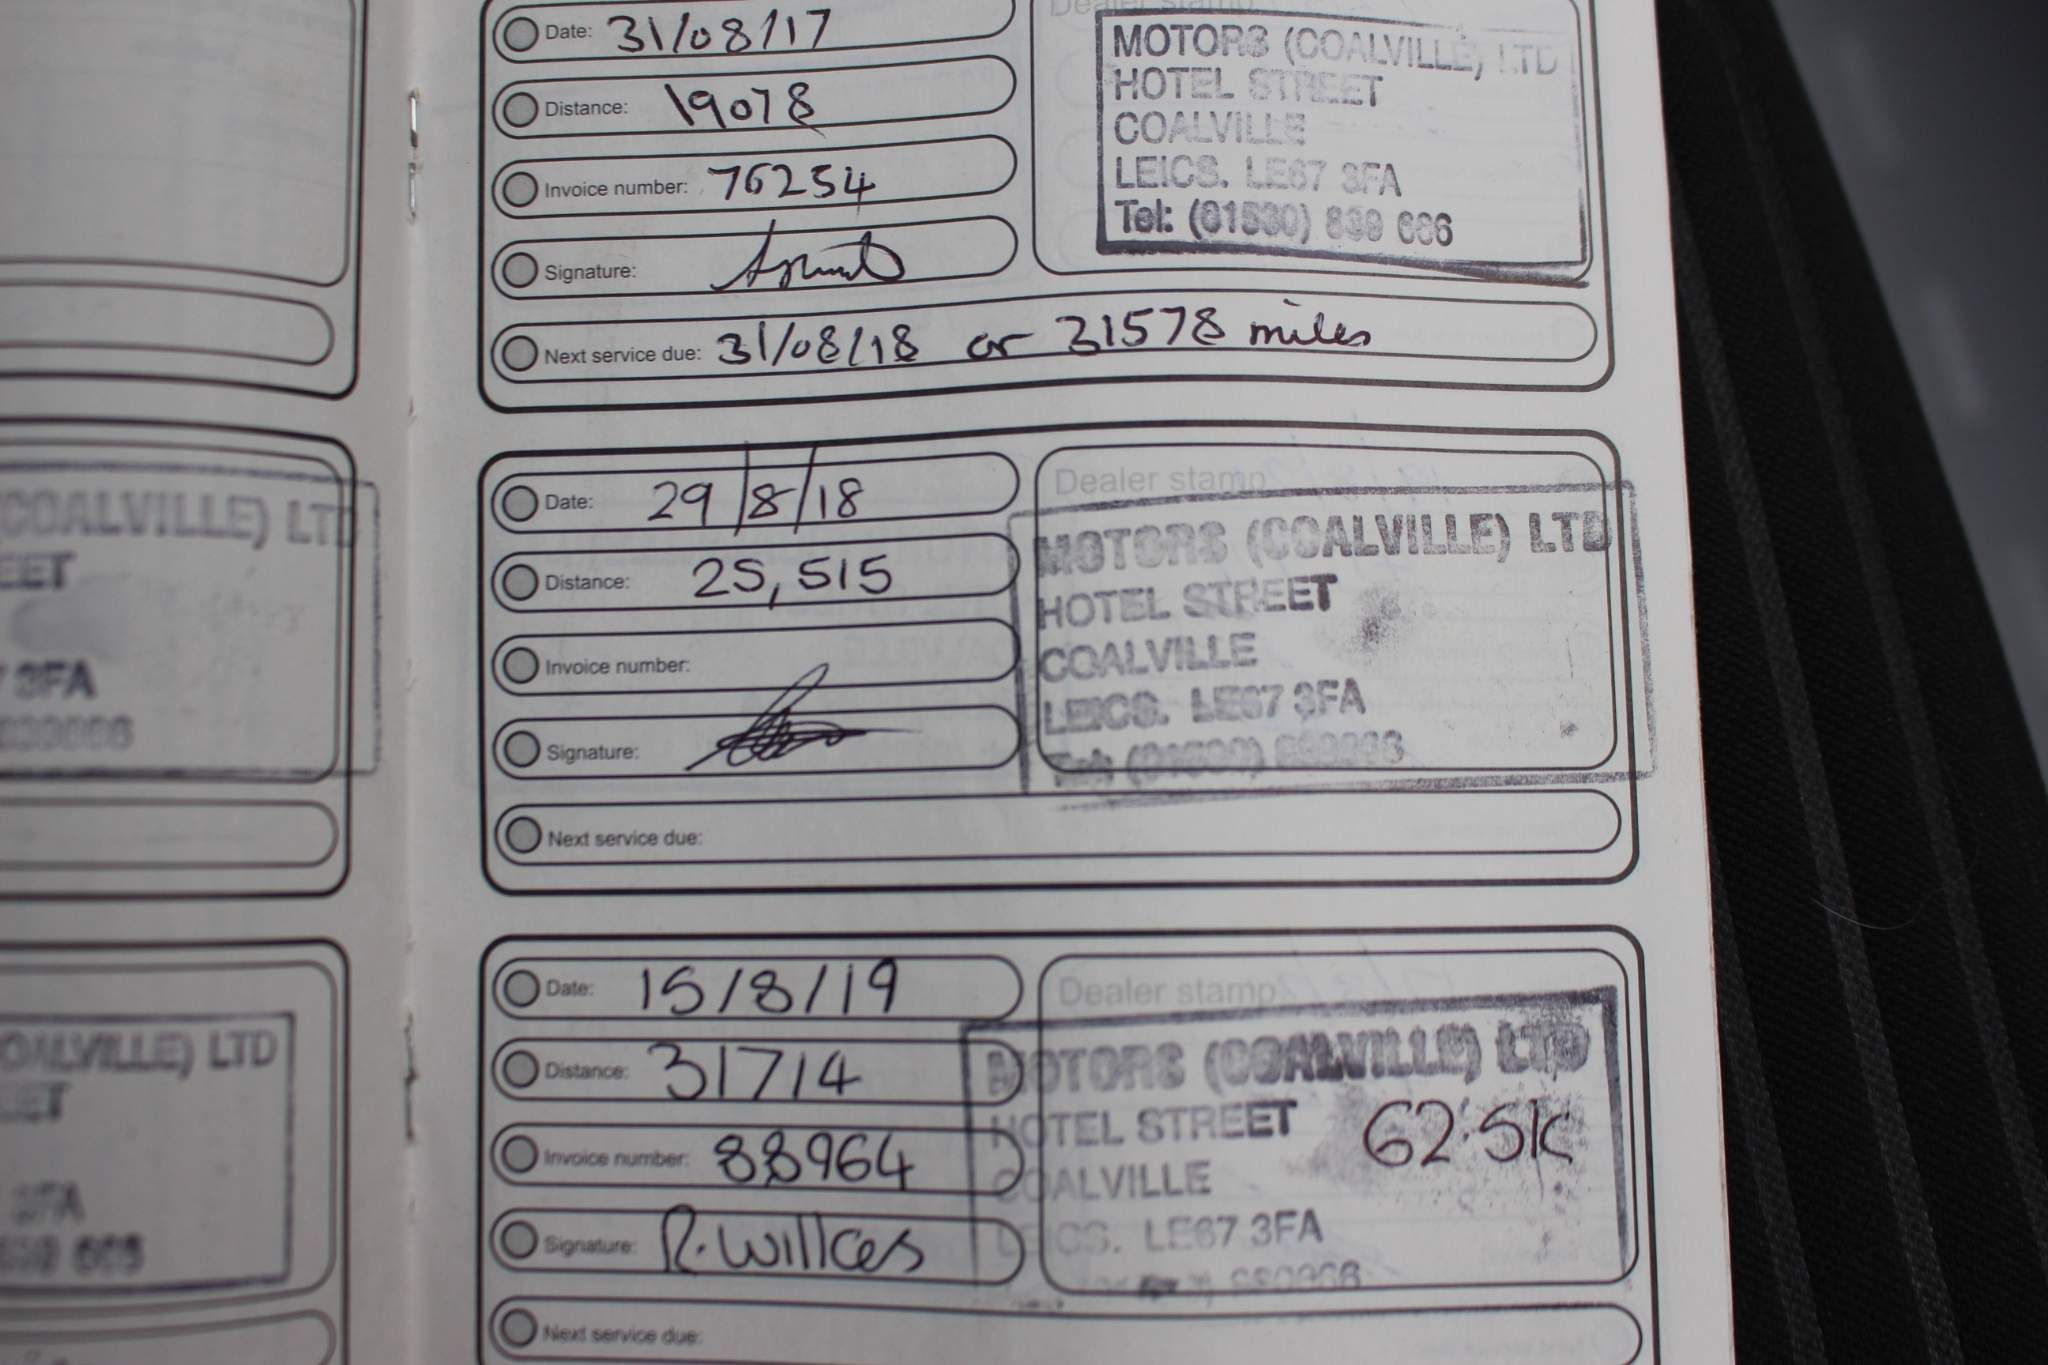 Date: 31/08/17
Distance: 19078
Invoice number: 76254
Signature:
Next service due: 31/08/18 or 31578 miles
Dealer stamp
MOTORS (COALVILLE) LTD
HOTEL STREET
COALVILLE
LEICS. LE67 3FA
Tel: (01530) 839 666
(COALVILLE) LTD
EET
3FA
Date: 29/8/18
Distance: 25,515
Invoice number:
Signature:
Next service due:
Dealer stamp
MOTORS (COALVILLE) LTD
HOTEL STREET
COALVILLE
LEICS. LE67 3FA
OALVILLE) LTD
EET
3FA
Date: 15/8/19
Distance: 31714
Invoice number: 88964
Signature: R. Willces
Next service due:
Dealer stamp
MOTORS (COALVILLE) LTD
HOTEL STREET
62.5K
COALVILLE
LEICS. LE67 3FA